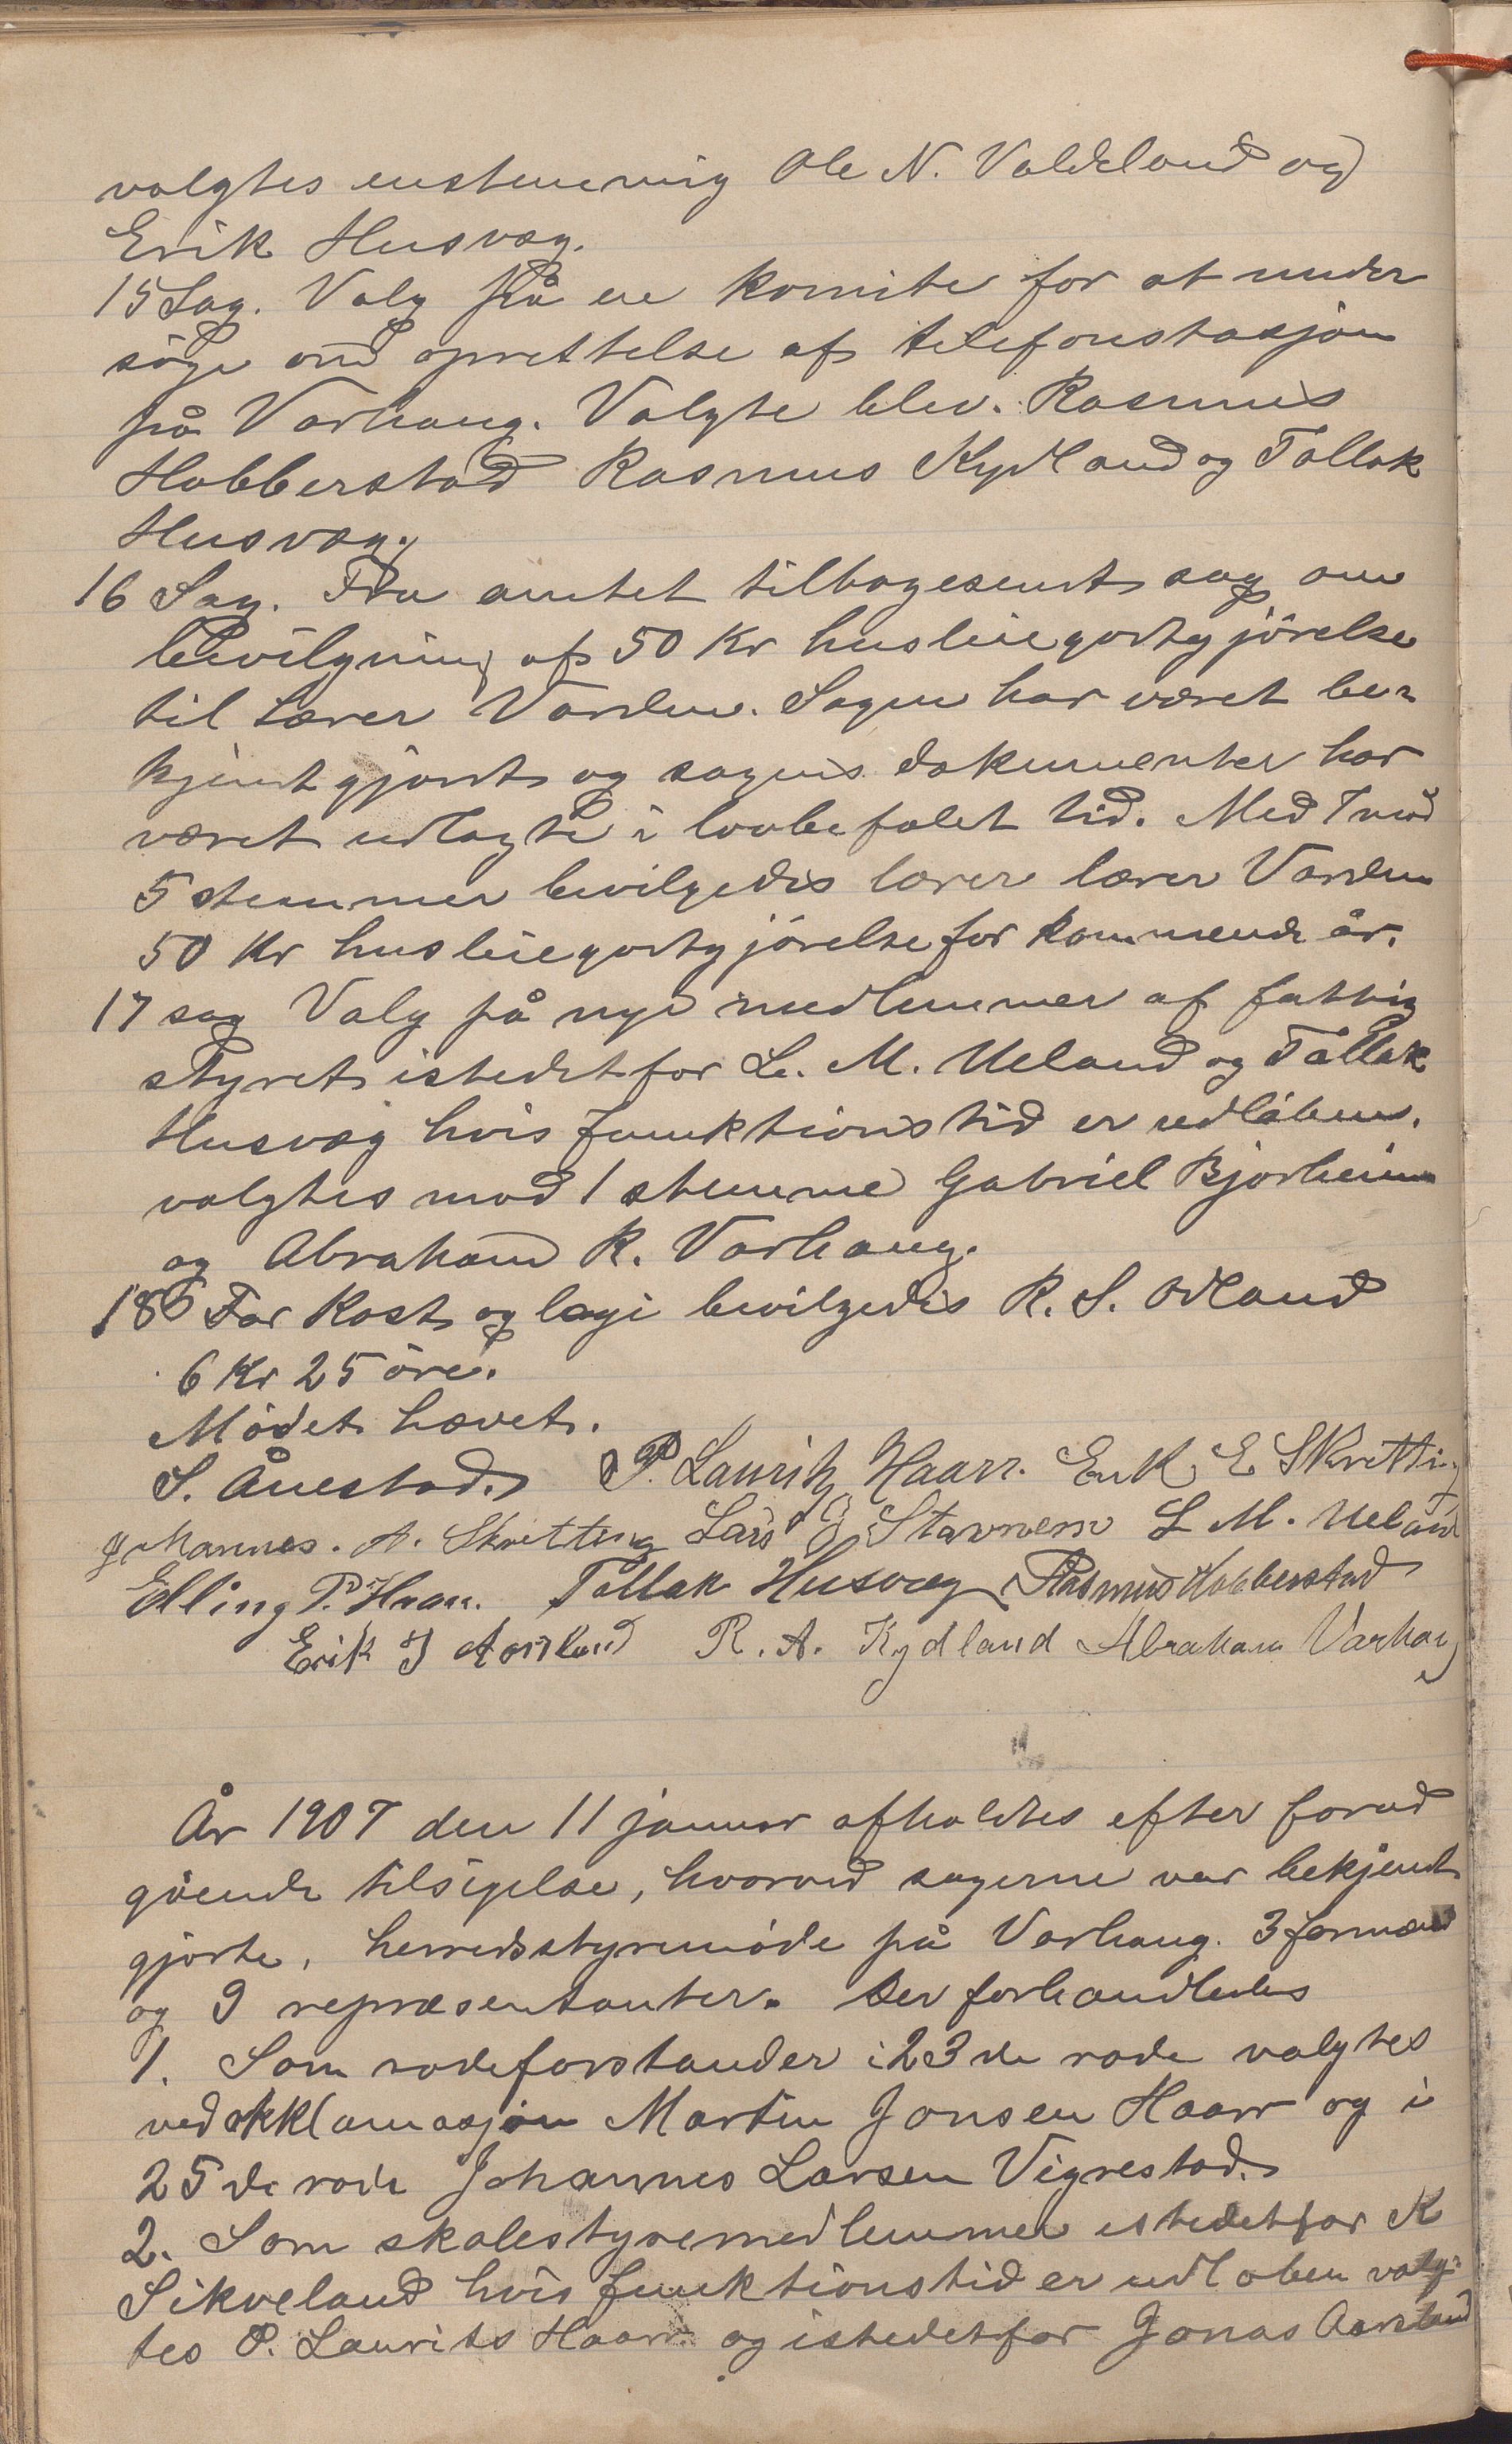 valgtes enstemmig Ole N. Valdeland og
Erik Husvæg.
15 Sag. Valg på en komite for at under
søge om oprettelse af telefonstasjon
på Varhaug. Valgte blev. Rasmus
Hobberstad Rasmus Kydland og Tollak
Husvæg.
16 Sag. Fra amtet tilbagesendt sag om
bevilgning af 50 Kr husleiegodtgjörelse
til Lærer Varden. Sagen har været be-
kjendtgjordt og sagens dokumenter har
været udlagte i lovbefalet tid. Med 7 mod
5 stemmer bevilgedes lærer lærer Varden
50 Kr husleiegodtgjörelse for kommende år.
17 sag Valg på nye medlemmer af fattig
styret istedetfor L. M. Ueland og Tollak
Husvæg hvis funktionstid er udlöben.
valgtes mod 1 stemme Gabriel Bjorheim
og Abraham R. Varhaug.
18 For Kost og logi bevilgedes R. S. Odland
6 Kr 25 öre.
Mödet hævet.
S. Ånestad. P. Lauritz Haarr. Erik E Skretting
Johannes. A. Skretting Lars J Stavnem L M. Ueland
Elling P. Haar. Tollak Husvæg Rasmus Hobberstad
Erik J Aarsland R. A. Kydland Abraham Varhaug
År 1907 den 11 januar afholdtes efter forud
gående tilsigelse, hvorved sagerne var bekjendt
gjorte, herredsstyremöde på Varhaug. 3 formænd
og 9 repræsentanter. Der forhandledes
1. Som rodeforstander i 23de rode valgtes
ved akklamasjon Martin Jonsen Haarr og i
25de rode Johannes Larsen Vigrestad.
2. Som skolestyremedlemmer istedetfor K
Sikveland hvis funktionstid er udloben valg-
tes P. Laurits Haarr og istedetfor Jonas Aarsland